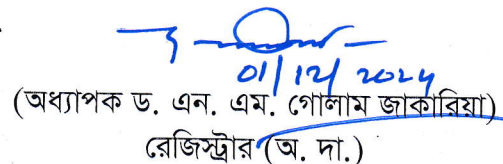 01/12/2024
(অধ্যাপক ড. এন. এম. গোলাম জাকারিয়া)
রেজিস্ট্রার (অ. দা.)